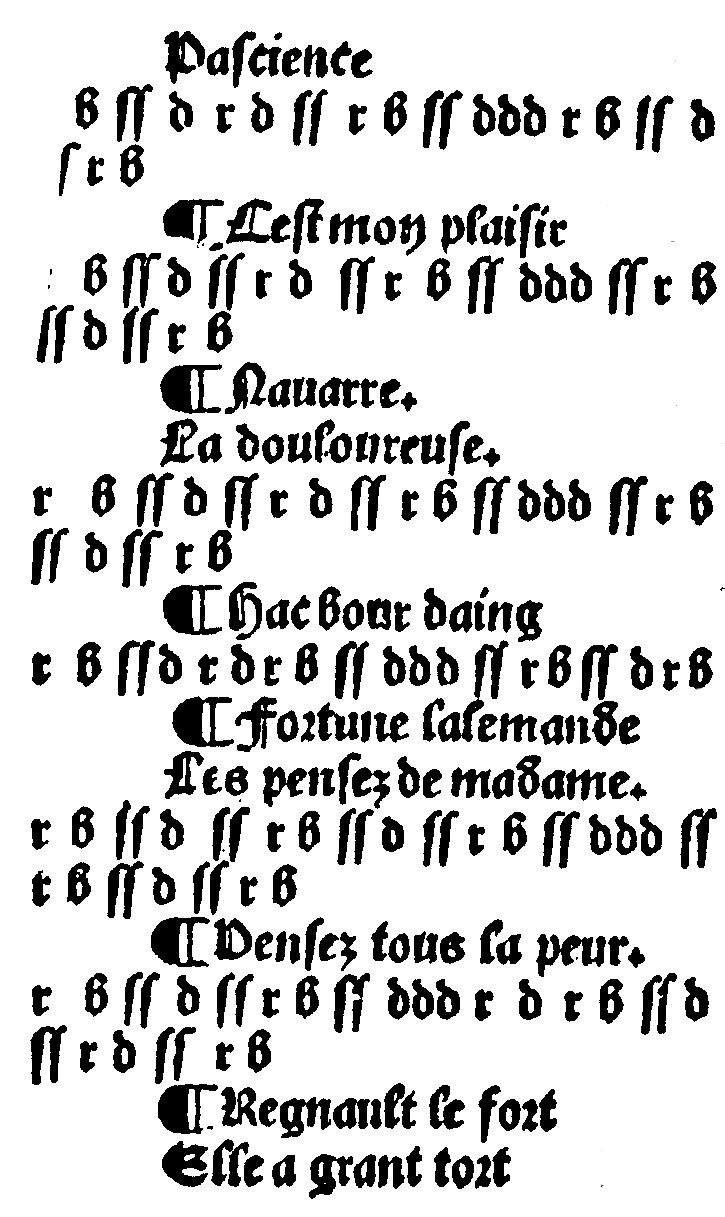 Paſcience
b ſſ d r d ſſ r b ſſ ddd r b ſſ d
ſ r b
¶ Ceſt mon plaiſir
b ſſ d ſſ r d ſſ r b ſſ ddd ſſ r b
ſſ d ſſ r b
¶ Nauarre.
La douloureuſe.
r b ſſ d ſſ r d ſſ r b ſſ ddd ſſ r b
ſſ d ſſ r b
¶ Hac bour daing
r b ſſ d r d r b ſſ ddd ſſ r b ſſ d r b
¶ Fortune lalemande
Les penſez de madame.
r b ſſ d ſſ r b ſſ d ſſ r b ſſ ddd ſſ
r b ſſ d ſſ r b
¶ Penſez tous la peur.
r b ſſ d ſſ r b ſſ ddd r d r b ſſ d
ſſ r d ſſ r b
¶ Regnault le fort
Elle a grant tort